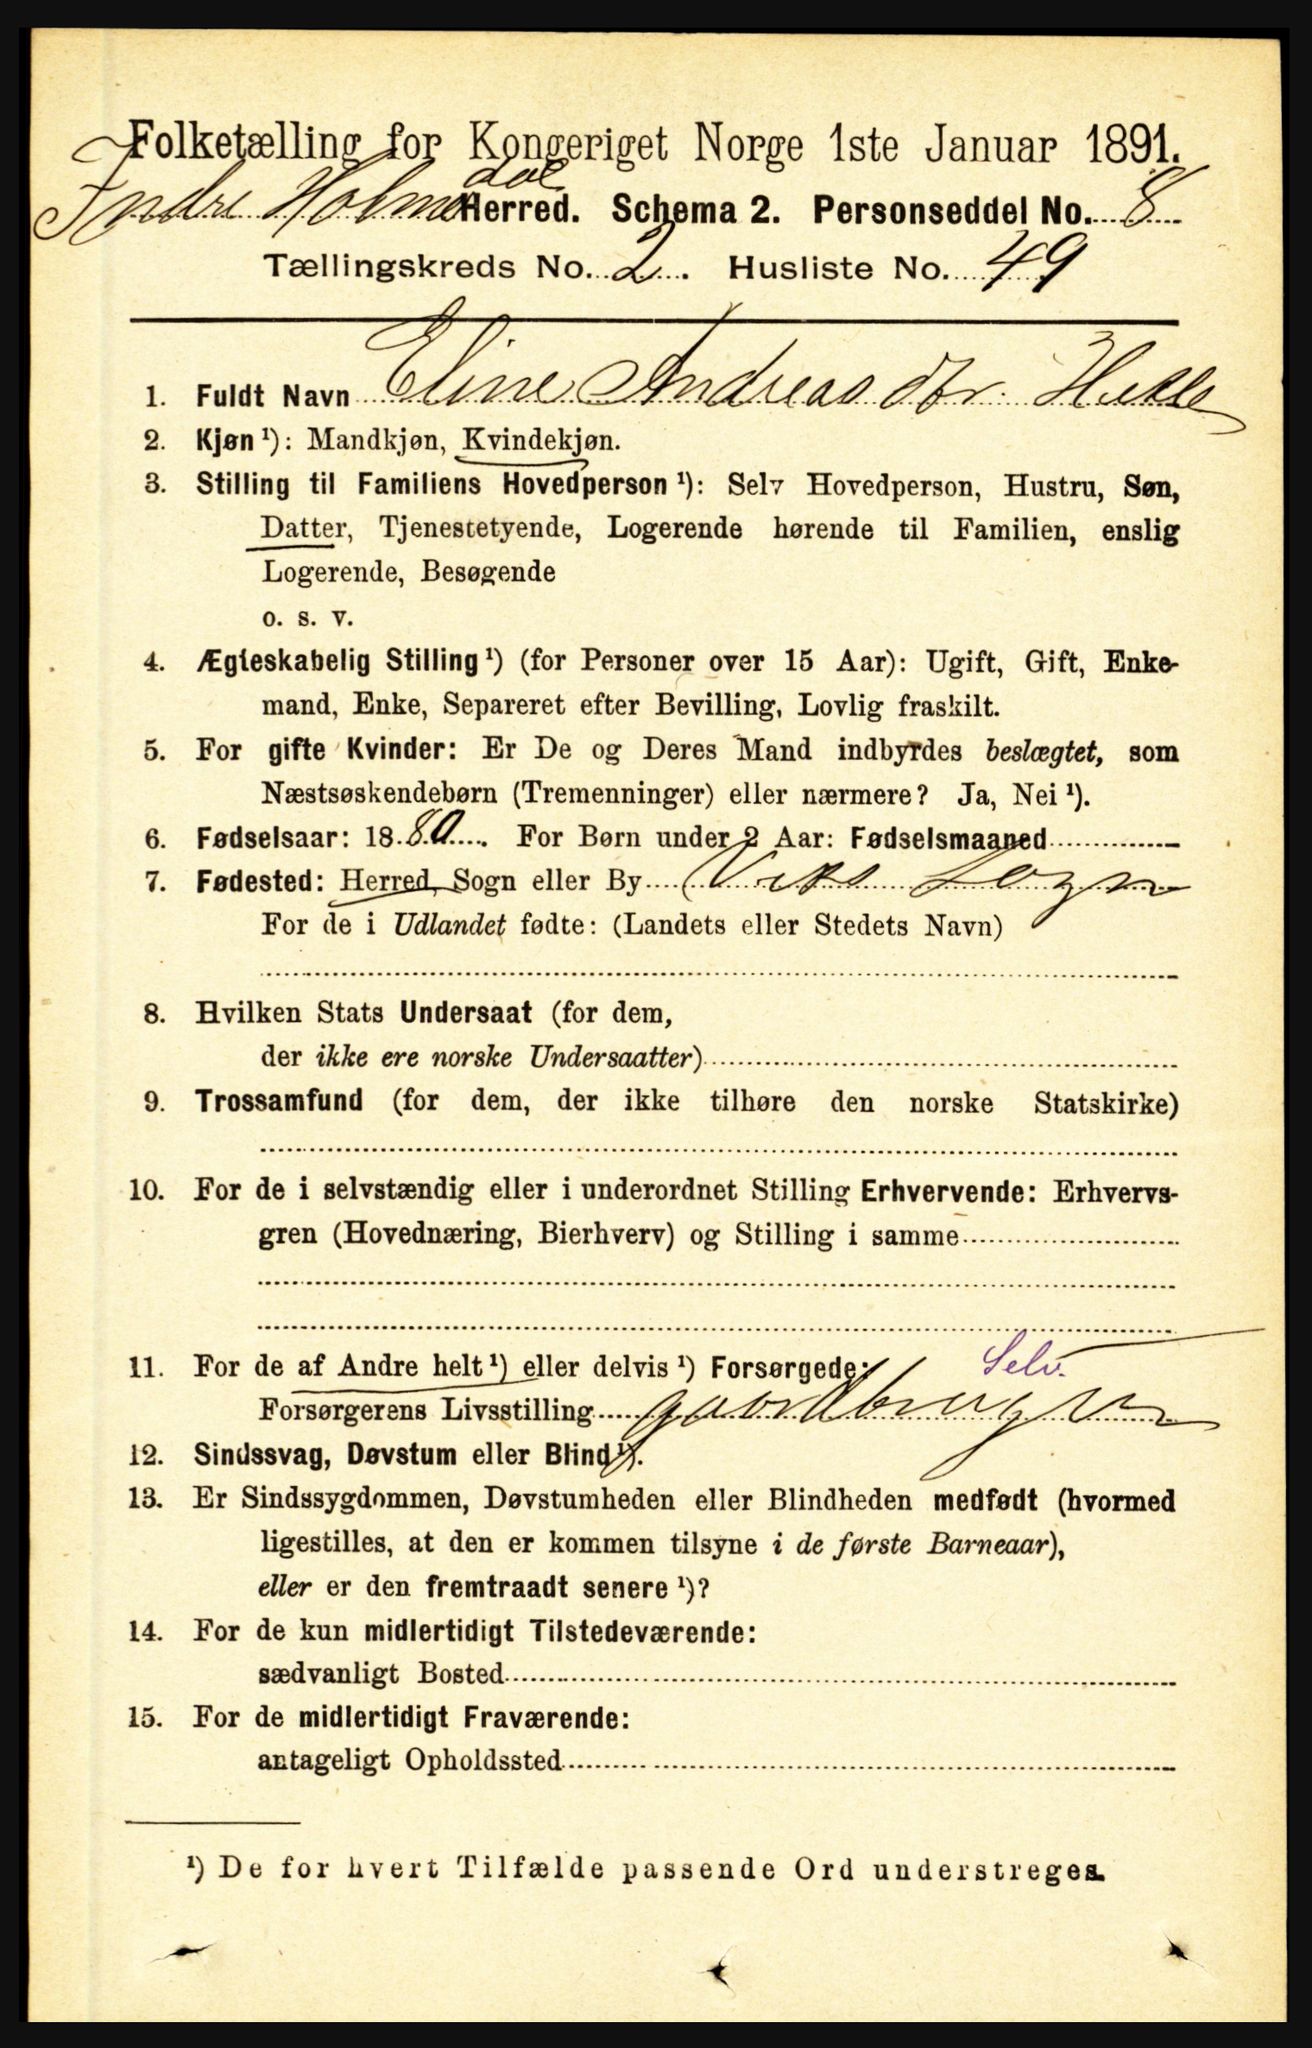 Folketælling for Kongeriget Norge 1ste Januar 1891.
Indre Holmedal Herred. Schema 2. Personseddel No. 8
Tællingskreds No. 2. Husliste No. 49
1. Fuldt Navn Eline Andreasdtr. Helle
2. Kjøn ¹): Mandkjøn, Kvindekjøn.
3. Stilling til Familiens Hovedperson ¹): Selv Hovedperson, Hustru, Søn,
Datter, Tjenestetyende, Logerende hørende til Familien, enslig
Logerende, Besøgende
o. s. v.
4. Ægteskabelig Stilling ¹) (for Personer over 15 Aar): Ugift, Gift, Enke-
mand, Enke, Separeret efter Bevilling, Lovlig fraskilt.
5. For gifte Kvinder: Er De og Deres Mand indbyrdes beslægtet, som
Næstsøskendebørn (Tremenninger) eller nærmere? Ja, Nei ¹).
6. Fødselsaar: 1880. For Børn under 2 Aar: Fødselsmaaned
7. Fødested: Herred, Sogn eller By Viks Sogn
For de i Udlandet fødte: (Landets eller Stedets Navn)
8. Hvilken Stats Undersaat (for dem,
der ikke ere norske Undersaatter)
9. Trossamfund (for dem, der ikke tilhøre den norske Statskirke)
10. For de i selvstændig eller i underordnet Stilling Erhvervende: Erhvervs-
gren (Hovednæring, Bierhverv) og Stilling i samme
11. For de af Andre helt ¹) eller delvis ¹) Forsørgede: Selv.
Forsørgerens Livsstilling gaardbruger
12. Sindssvag, Døvstum eller Blind ¹).
13. Er Sindssygdommen, Døvstumheden eller Blindheden medfødt (hvormed
ligestilles, at den er kommen tilsyne i de første Barneaar),
eller er den fremtraadt senere ¹)?
14. For de kun midlertidigt Tilstedeværende:
sædvanligt Bosted
15. For de midlertidigt Fraværende:
antageligt Opholdssted
¹) De for hvert Tilfælde passende Ord understreges.